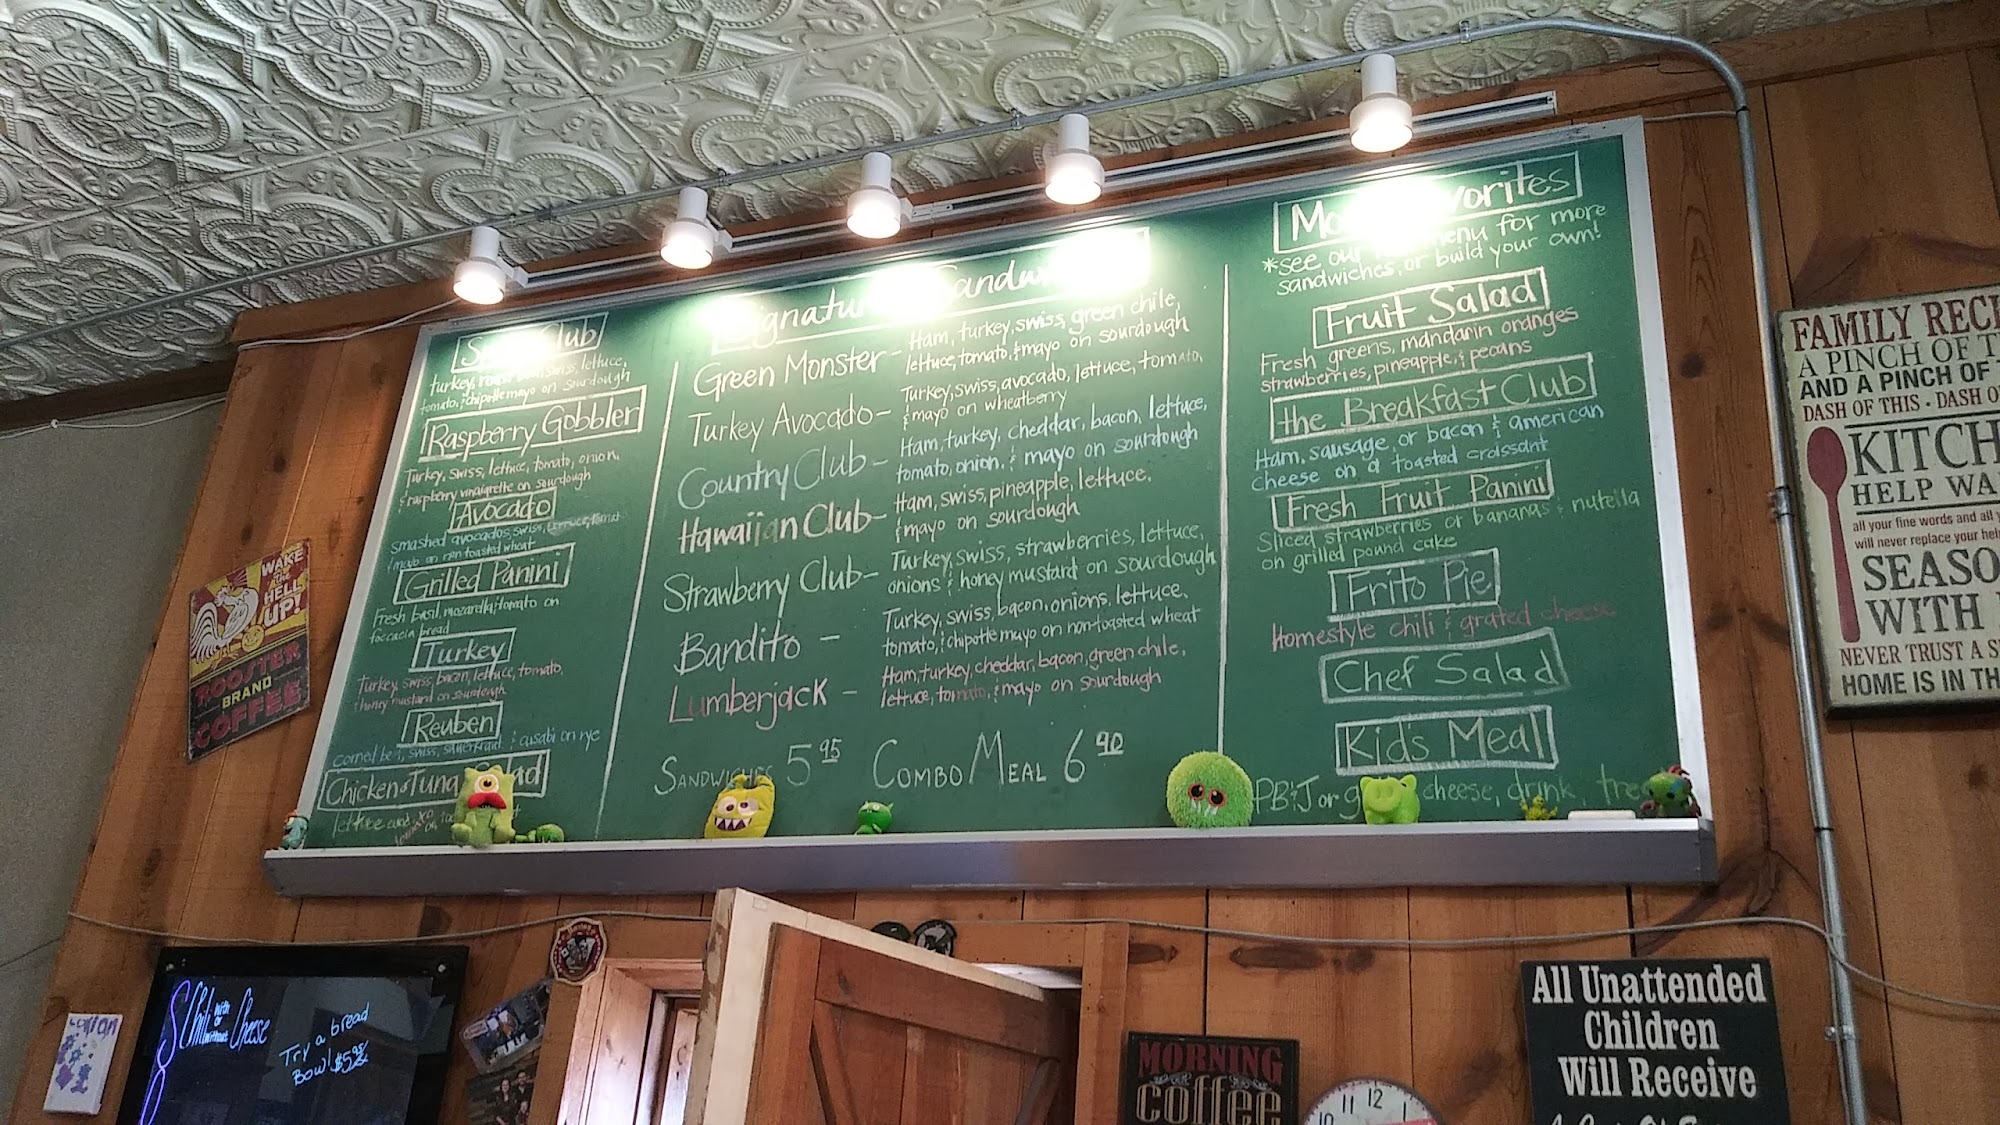 Club
turkey, swiss, lettuce,
tomato, & chipotle mayo on sourdough
Raspberry Gobbler
Turkey, swiss, lettuce, tomato, onion,
& raspberry vinaigrette on sourdough
Avocado
smashed avocados, swiss, lettuce,
& mayo on non toasted wheat
Grilled Panini
Fresh basil, mozarella, tomato on
foccacia bread
Turkey
Turkey, swiss, bacon, lettuce, tomato,
& honey mustard on sourdough
Reuben
corned beef, swiss, sauerkraut, & ausabi on rye
Chicken or Tuna Salad
lettuce and
Signature
Green Monster - Ham, turkey, swiss, green chile,
lettuce, tomato, & mayo on sourdough
Turkey Avocado - Turkey, swiss, avocado, lettuce, tomato,
& mayo on wheatberry
Country Club - Ham, turkey, cheddar, bacon, lettuce,
tomato, onion, & mayo on sourdough
Hawaiian Club - Ham, swiss, pineapple, lettuce,
& mayo on sourdough
Strawberry Club - Turkey, swiss, strawberries, lettuce,
onions & honey mustard on sourdough
Bandito - Turkey, swiss, bacon, onions, lettuce,
tomato, & chipotle mayo on non-toasted wheat
Lumberjack - Ham, turkey, cheddar, bacon, green chile,
lettuce, tomato, & mayo on sourdough
Sandwiches 5 95 Combo Meal 6 90
*see our menu for more
sandwiches, or build your own!
Fruit Salad
Fresh greens, mandanin oranges
strawberries, pineapple, & pecans
the Breakfast Club
Ham, sausage, or bacon & american
cheese on a toasted croissant
Fresh Fruit Panini
Sliced strawberries or bananas & nutella
on grilled pound cake
Frito Pie
Homestyle chili & grated cheese
Chef Salad
Kid's Meal
PB&J or cheese, drink,
WAKE
the
HELL
UP!
ROOSTER
BRAND
COFFEE
FAMILY
A PINCH OF
AND A PINCH OF
DASH OF THIS • DASH
KITCH
HELP
all your fine words and all
will never replace your
SEASO
WITH
NEVER TRUST A
HOME IS IN
Chili with or without Cheese
Try a bread
Bowl $5.95
MORNING
coffee
10 11 12 1
All Unattended
Children
Will Receive